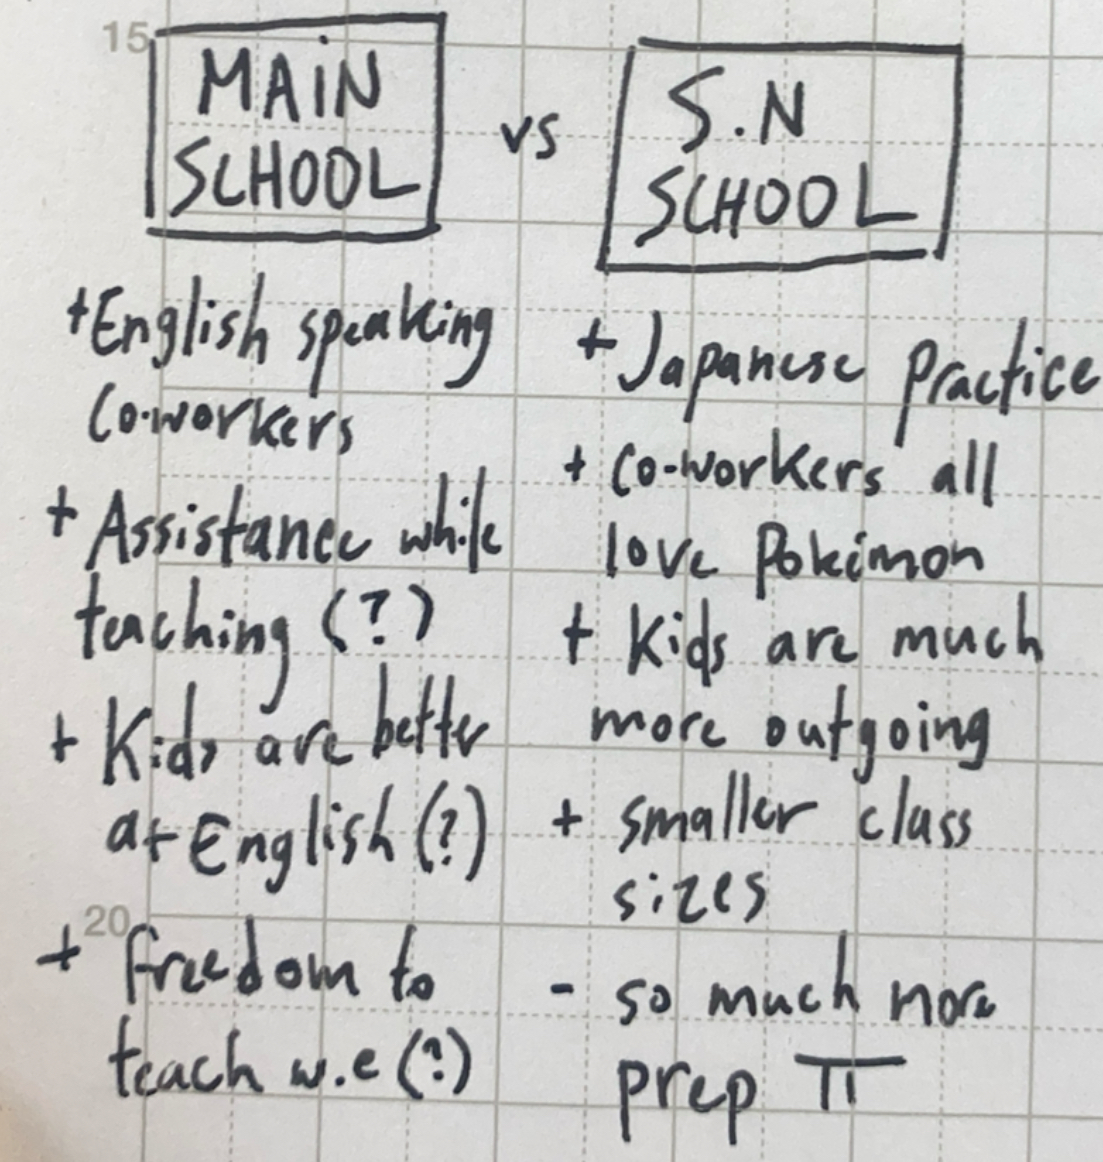 15
MAIN
SCHOOL
vs
S.N
SCHOOL
+English speaking
Co-workers
+ Assistance while
teaching (?)
+ Kids are better
at English (?)
20
+ freedom to
teach w.e (?)
+ Japanese Practice
+ Co-workers all
love Pokémon
+ Kids are much
more outgoing
+ smaller class
sizes
- so much more
prep TT